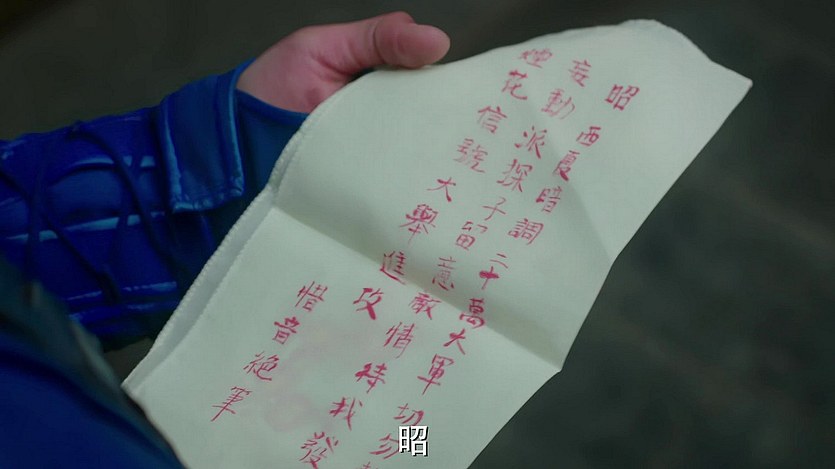 昭
西夏暗調二十萬大軍切勿
妄動派探子留意敵情待我發
煙花信號大舉進攻
惜音絕筆
昭